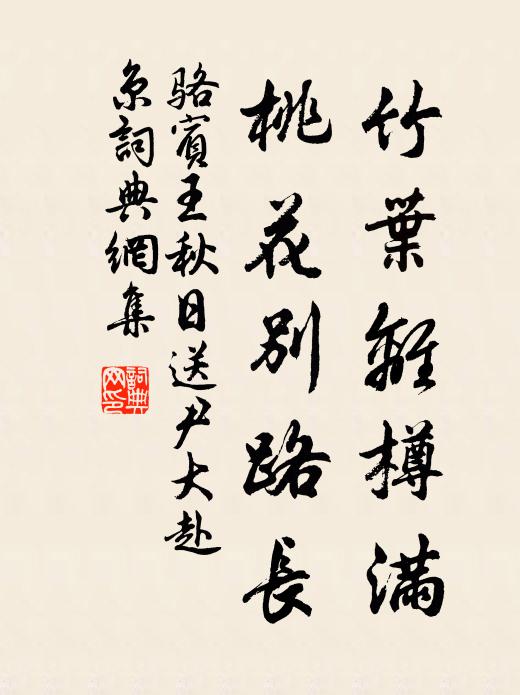 竹葉離樽滿
桃花別路長
駱賓王秋日送尹大赴
京詞典網集
詞典
网印